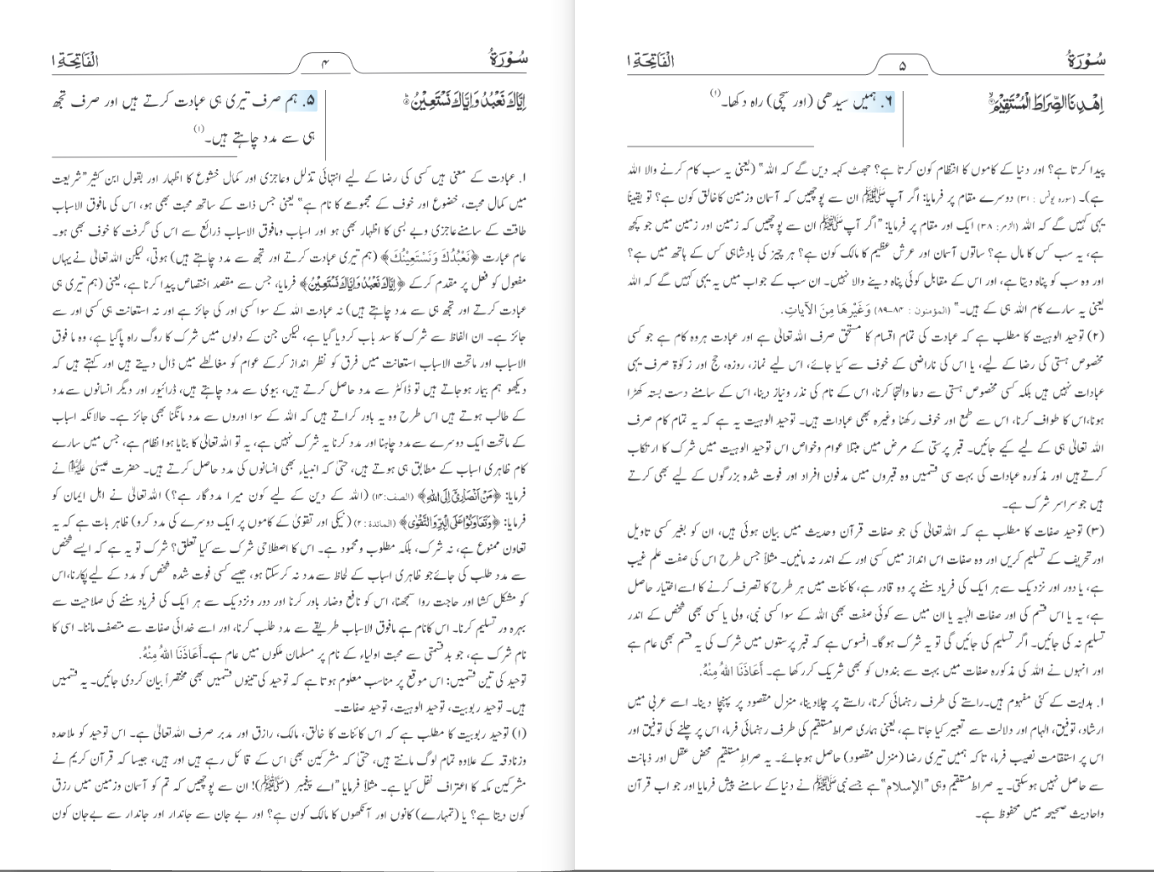 سُوْرَةُ ۴ الْفَاتِحَةِ ۱
اِيَّاكَ نَعْبُدُ وَاِيَّاكَ نَسْتَعِيْنُ
۵. ہم صرف تیری ہی عبادت کرتے ہیں اور صرف تجھ
ہی سے مدد چاہتے ہیں۔(۱)
۱. عبادت کے معنی ہیں کسی کی رضا کے لیے انتہائی تذلل وعاجزی اور کمال خشوع کا اظہار اور بقول ابن کثیر "شریعت
میں کمال محبت، خضوع اور خوف کے مجموعے کا نام ہے" یعنی جس ذات کے ساتھ محبت بھی ہو، اس کی مافوق الاسباب
طاقت کے سامنے عاجزی وبے بسی کا اظہار بھی ہو اور اسباب ومافوق الاسباب ذرائع سے اس کی گرفت کا خوف بھی ہو۔
عام عبارت ﴿نَعْبُدُكَ وَنَسْتَعِيْنُكَ﴾ (ہم تیری عبادت کرتے اور تجھ سے مدد چاہتے ہیں) ہوتی، لیکن اللہ تعالیٰ نے یہاں
مفعول کو فعل پر مقدم کرکے ﴿اِيَّاكَ نَعْبُدُ وَاِيَّاكَ نَسْتَعِيْنُ﴾ فرمایا، جس سے مقصد اختصاص پیدا کرنا ہے، یعنی (ہم تیری ہی
عبادت کرتے اور تجھ ہی سے مدد چاہتے ہیں) نہ عبادت اللہ کے سوا کسی اور کی جائز ہے اور نہ استعانت ہی کسی اور سے
جائز ہے۔ ان الفاظ سے شرک کا سد باب کردیا گیا ہے، لیکن جن کے دلوں میں شرک کا روگ راہ پاگیا ہے، وہ ما فوق
الاسباب اور ماتحت الاسباب استعانت میں فرق کو نظر انداز کرکے عوام کو مغالطے میں ڈال دیتے ہیں اور کہتے ہیں کہ
دیکھو ہم بیمار ہوجاتے ہیں تو ڈاکٹر سے مدد حاصل کرتے ہیں، بیوی سے مدد چاہتے ہیں، ڈرائیور اور دیگر انسانوں سے مدد
کے طالب ہوتے ہیں اس طرح وہ یہ باور کراتے ہیں کہ اللہ کے سوا اوروں سے مدد مانگنا بھی جائز ہے۔ حالانکہ اسباب
کے ماتحت ایک دوسرے سے مدد چاہنا اور مدد کرنا یہ شرک نہیں ہے، یہ تو اللہ تعالیٰ کا بنایا ہوا نظام ہے، جس میں سارے
کام ظاہری اسباب کے مطابق ہی ہوتے ہیں، حتیٰ کہ انبیاء بھی انسانوں کی مدد حاصل کرتے ہیں۔ حضرت عیسیٰ علیہ السلام نے
فرمایا: ﴿مَنْ اَنْصَارِيْٓ اِلَى اللّٰهِ﴾ (الصف:۱۴) (اللہ کے دین کے لیے کون میرا مددگار ہے؟) اللہ تعالیٰ نے اہل ایمان کو
فرمایا: ﴿وَتَعَاوَنُوْا عَلَى الْبِرِّ وَالتَّقْوٰى﴾ (المائدة:۲) (نیکی اور تقویٰ کے کاموں پر ایک دوسرے کی مدد کرو) ظاہر بات ہے کہ یہ
تعاون ممنوع ہے، نہ شرک، بلکہ مطلوب ومحمود ہے۔ اس کا اصطلاحی شرک سے کیا تعلق؟ شرک تو یہ ہے کہ ایسے شخص
سے مدد طلب کی جائے جو ظاہری اسباب کے لحاظ سے مدد نہ کرسکتا ہو، جیسے کسی فوت شدہ شخص کو مدد کے لیے پکارنا،اس
کو مشکل کشا اور حاجت روا سمجھنا، اس کو نافع وضار باور کرنا اور دور ونزدیک سے ہر ایک کی فریاد سننے کی صلاحیت سے
بہرہ ور تسلیم کرنا۔ اس کانام ہے مافوق الاسباب طریقے سے مدد طلب کرنا، اور اسے خدائی صفات سے متصف ماننا۔ اسی کا
نام شرک ہے، جو بدقسمتی سے محبت اولیاء کے نام پر مسلمان ملکوں میں عام ہے۔ أَعَاذَنَا اللهُ مِنْهُ.
توحید کی تین قسمیں: اس موقع پر مناسب معلوم ہوتا ہے کہ توحید کی تینوں قسمیں بھی مختصراً بیان کردی جائیں۔ یہ قسمیں
ہیں۔ توحید ربوبیت، توحید الوہیت، توحید صفات۔
(۱) توحید ربوبیت کا مطلب ہے کہ اس کائنات کا خالق، مالک، رازق اور مدبر صرف اللہ تعالیٰ ہے۔ اس توحید کو ملاحدہ
وزنادقہ کے علاوہ تمام لوگ مانتے ہیں، حتیٰ کہ مشرکین بھی اس کے قائل رہے ہیں اور ہیں، جیسا کہ قرآن کریم نے
مشرکین مکہ کا اعتراف نقل کیا ہے۔ مثلاً فرمایا "اے پیغمبر (ﷺ)! ان سے پوچھیں کہ تم کو آسمان وزمین میں رزق
کون دیتا ہے؟ یا (تمہارے) کانوں اور آنکھوں کا مالک کون ہے؟ اور بے جان سے جاندار اور جاندار سے بےجان کون
سُوْرَةُ ۵ الْفَاتِحَةِ ۱
اِهْدِنَا الصِّرَاطَ الْمُسْتَقِيْمَ
۶. ہمیں سیدھی (اور سچی) راہ دکھا۔(۱)
پیدا کرتا ہے؟ اور دنیا کے کاموں کا انتظام کون کرتا ہے؟ جھٹ کہہ دیں گے کہ اللہ" (یعنی یہ سب کام کرنے والا اللہ
ہے)۔ (سورہ یونس : ۳۱) دوسرے مقام پر فرمایا: اگر آپ ﷺ ان سے پوچھیں کہ آسمان وزمین کا خالق کون ہے؟ تو یقیناً
یہی کہیں گے کہ اللہ (الزمر: ۳۸) ایک اور مقام پر فرمایا: "اگر آپ ﷺ ان سے پوچھیں کہ زمین اور زمین میں جو کچھ
ہے، یہ سب کس کا مال ہے؟ ساتوں آسمان اور عرش عظیم کا مالک کون ہے؟ ہر چیز کی بادشاہی کس کے ہاتھ میں ہے؟
اور وہ سب کو پناہ دیتا ہے، اور اس کے مقابل کوئی پناہ دینے والا نہیں۔ ان سب کے جواب میں یہ یہی کہیں گے کہ اللہ
یعنی یہ سارے کام اللہ ہی کے ہیں۔" (المؤمنون : ۸۴-۸۹) وَغَيْرِهَا مِنَ الآيَاتِ.
(۲) توحید الوہیت کا مطلب ہے کہ عبادت کی تمام اقسام کا مستحق صرف اللہ تعالیٰ ہے اور عبادت ہر وہ کام ہے جو کسی
مخصوص ہستی کی رضا کے لیے، یا اس کی ناراضی کے خوف سے کیا جائے، اس لیے نماز، روزہ، حج اور زکوٰۃ صرف یہی
عبادات نہیں ہیں بلکہ کسی مخصوص ہستی سے دعا والتجا کرنا، اس کے نام کی نذر ونیاز دینا، اس کے سامنے دست بستہ کھڑا
ہونا،اس کا طواف کرنا، اس سے طمع اور خوف رکھنا وغیرہ بھی عبادات ہیں۔ توحید الوہیت یہ ہے کہ یہ تمام کام صرف
اللہ تعالیٰ ہی کے لیے کیے جائیں۔ قبرپرستی کے مرض میں مبتلا عوام وخواص اس توحید الوہیت میں شرک کا ارتکاب
کرتے ہیں اور مذکورہ عبادات کی بہت سی قسمیں وہ قبروں میں مدفون افراد اور فوت شدہ بزرگوں کے لیے بھی کرتے
ہیں جو سراسر شرک ہے۔
(۳) توحید صفات کا مطلب ہے کہ اللہ تعالیٰ کی جو صفات قرآن وحدیث میں بیان ہوئی ہیں، ان کو بغیر کسی تاویل
اور تحریف کے تسلیم کریں اور وہ صفات اس انداز میں کسی اور کے اندر نہ مانیں۔ مثلاً جس طرح اس کی صفت علم غیب
ہے، یا دور اور نزدیک سے ہر ایک کی فریاد سننے پر وہ قادر ہے، کائنات میں ہر طرح کا تصرف کرنے کا اسے اختیار حاصل
ہے، یہ یا اس قسم کی اور صفات الٰہیہ یا ان میں سے کوئی صفت بھی اللہ کے سوا کسی نبی، ولی یا کسی بھی شخص کے اندر
تسلیم نہ کی جائیں۔ اگر تسلیم کی جائیں گی تو یہ شرک ہوگا۔ افسوس ہے کہ قبر پرستوں میں شرک کی یہ قسم بھی عام ہے
اور انہوں نے اللہ کی مذکورہ صفات میں بہت سے بندوں کو بھی شریک کررکھا ہے۔ أَعَاذَنَا اللهُ مِنْهُ.
۱. ہدایت کے کئی مفہوم ہیں۔راستے کی طرف رہنمائی کرنا، راستے پر چلادینا، منزل مقصود پر پہنچا دینا۔ اسے عربی میں
ارشاد، توفیق، الہام اور دلالت سے تعبیر کیا جاتا ہے، یعنی ہماری صراط مستقیم کی طرف رہنمائی فرما، اس پر چلنے کی توفیق اور
اس پر استقامت نصیب فرما، تاکہ ہمیں تیری رضا (منزل مقصود) حاصل ہوجائے۔ یہ صراط مستقیم محض عقل اور ذہانت
سے حاصل نہیں ہوسکتی۔ یہ صراط مستقیم وہی "الإسلام" ہے جسے نبی ﷺ نے دنیا کے سامنے پیش فرمایا اور جو اب قرآن
واحادیث صحیحہ میں محفوظ ہے۔